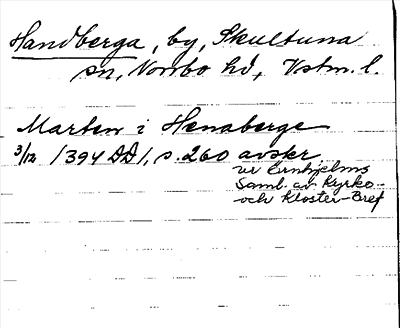 Handberga, by, Skultuna
sn, Norrbo hd, Vstm. l.
Marten i Henaberge
3/12 1394 DD1, s. 260 avskr
ur Örnhjelms
Saml. av Kyrko-
och Kloster-Bref